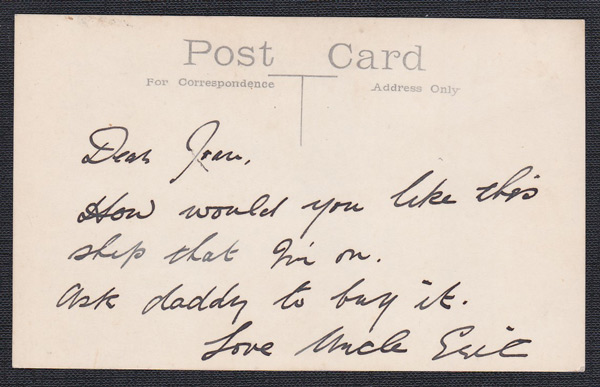 Post Card
For Correspondence Address Only
Dear Joan,
How would you like this
ship that I'm on.
Ask daddy to buy it.
Love Uncle Eric